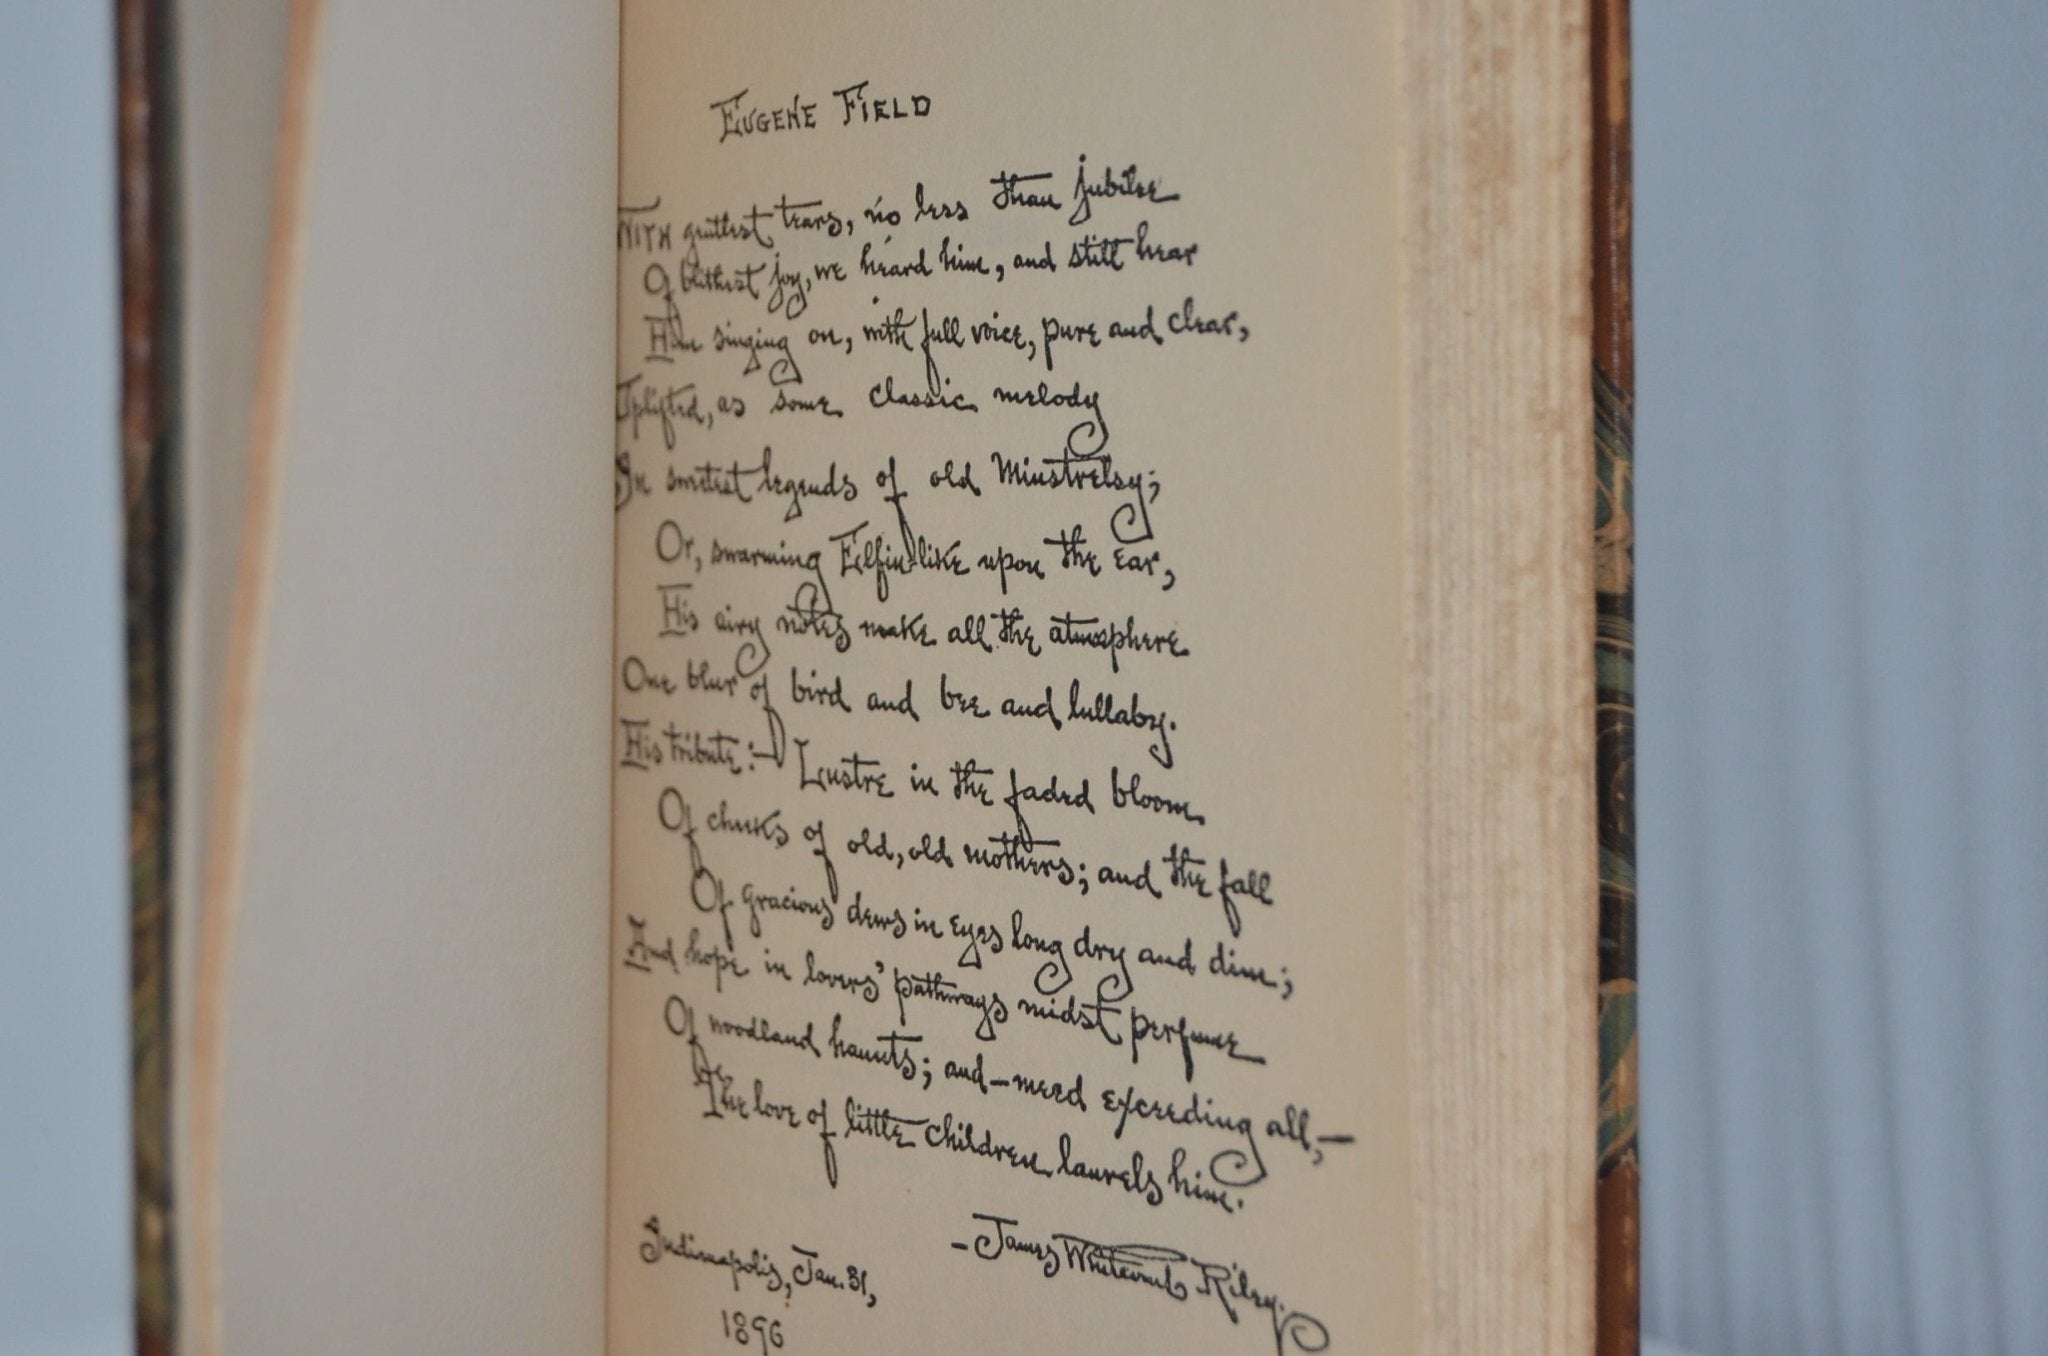 EUGENE FIELD
WITH gentlest tears, no less than jubilee
Of blithest joy, we heard him, and still hear
Him singing on, with full voice, pure and clear,
Uplifted, as some classic melody
In sweetest legends of old Minstrelsy;
Or, swarming Elfin-like upon the ear,
His airy notes make all the atmosphere
One blur of bird and bee and lullaby.
His tribute:— Lustre in the faded bloom
Of cheeks of old, old mothers; and the fall
Of gracious dews in eyes long dry and dim;
And hope in lovers' pathways midst perfume
Of woodland haunts; and—meed exceeding all,—
The love of little children laurels him.
—James Whitcomb Riley.
Indianapolis, Jan. 31,
1896